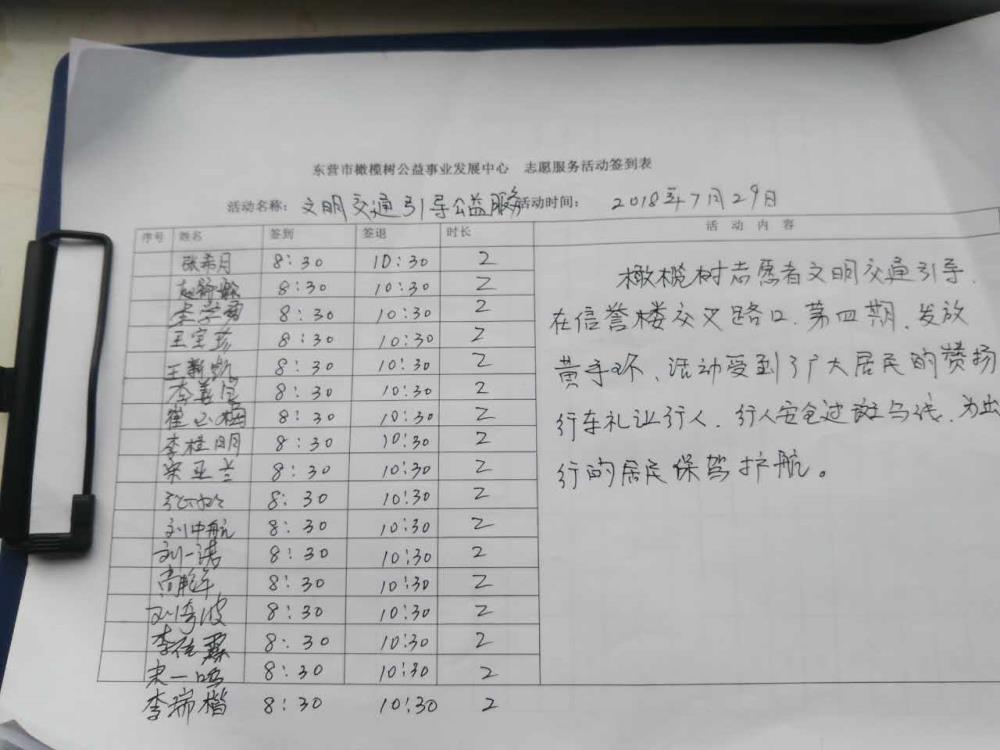 东营市橄榄树公益事业发展中心 志愿服务活动签到表
活动名称: 文明交通引导公益服务 活动时间: 2018年7月29日
序号 姓名 签到 签退 时长 活动内容
张希月 8:30 10:30 2
8:30 10:30 2
8:30 10:30 2
王宝珍 8:30 10:30 2
王新 8:30 10:30 2
李美 8:30 10:30 2
崔 梅 8:30 10:30 2
李桂明 8:30 10:30 2
宋亚兰 8:30 10:30 2
8:30 10:30 2
刘中航 8:30 10:30 2
刘一诺 8:30 10:30 2
8:30 10:30 2
刘 波 8:30 10:30 2
李佳霖 8:30 10:30 2
宋一 8:30 10:30 2
李瑞楷 8:30 10:30 2
橄榄树志愿者文明交通引导,
在信誉楼交叉路口,第四期,发放
黄手环、活动受到了广大居民的赞扬
行车礼让行人,行人安全过斑马线,为出
行的居民保驾护航。